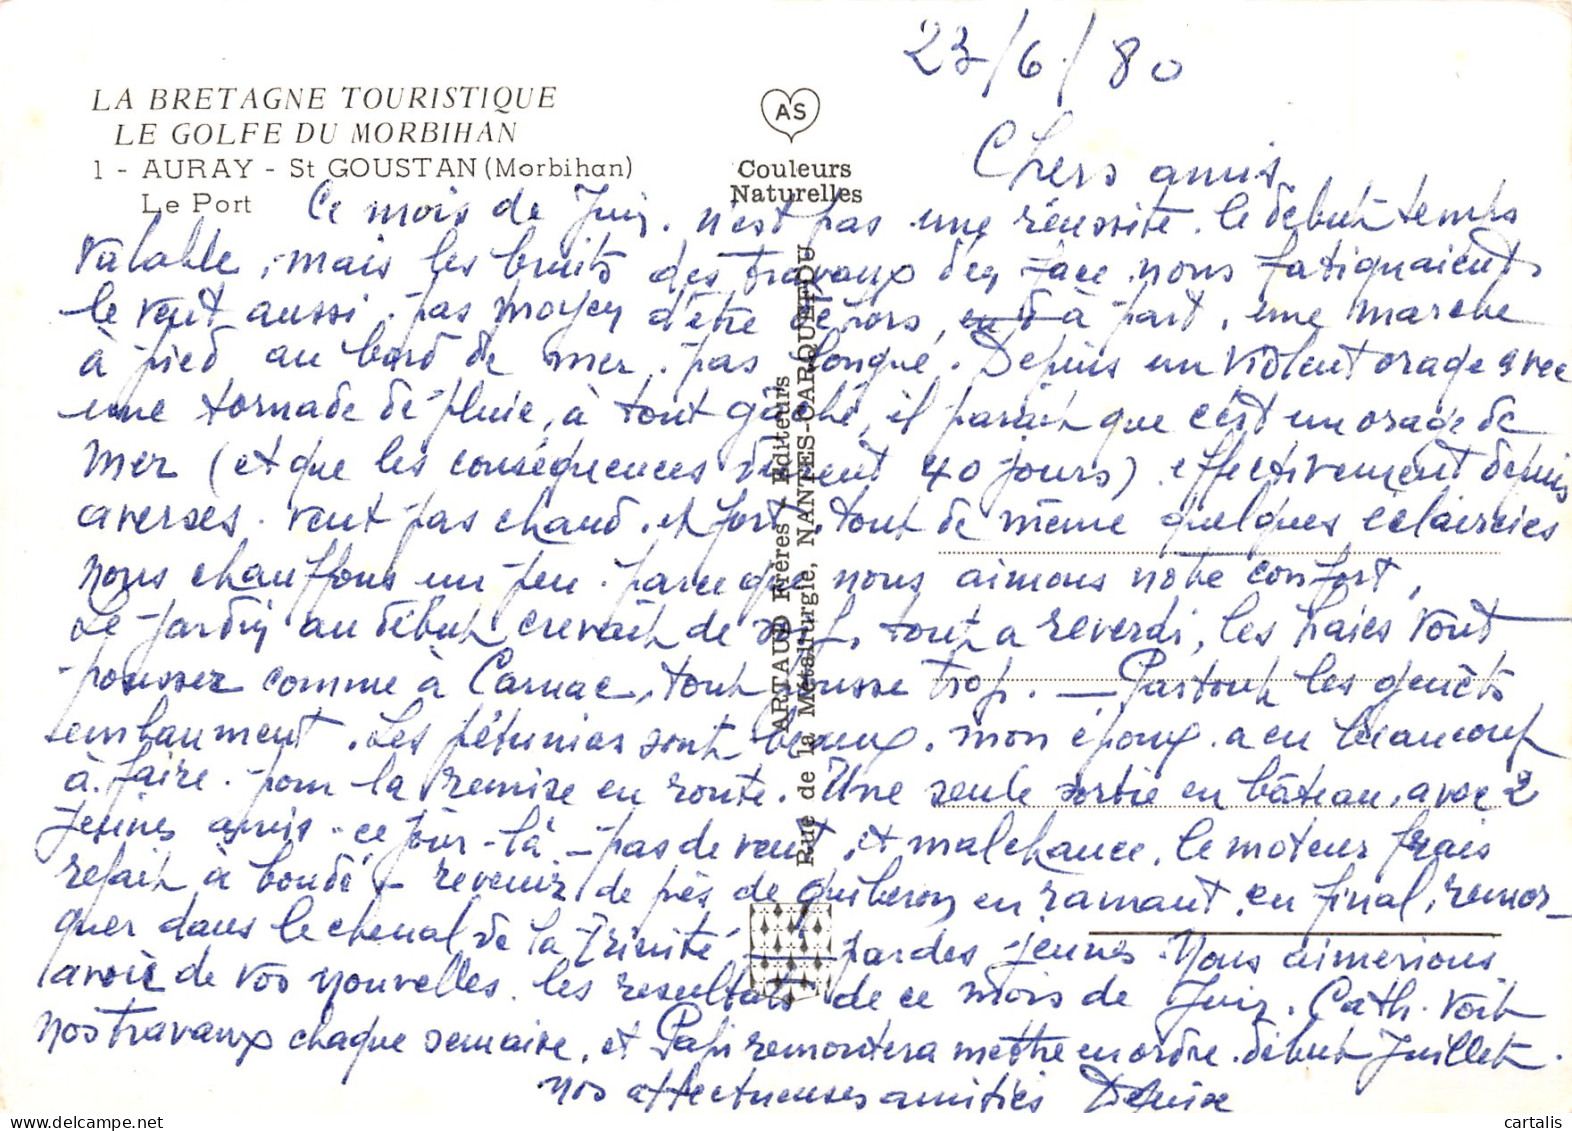 23/6/80
LA BRETAGNE TOURISTIQUE
LE GOLFE DU MORBIHAN
1 - AURAY - St GOUSTAN (Morbihan)
Le Port
AS
Couleurs
Naturelles
ARTAUD Frères Editeurs
Rue de la Métallurgie, NANTES-CARQUEFOU
Chers amis
Ce mois de Juin. n'est pas une réussite. le début temps
valable, mais les bruits des travaux d'en face nous fatiguaient,
le vent aussi. pas moyen d'être dehors, à part, une marche
à pied au bord de mer. pas longue. Depuis un violent orage avec
une tornade de pluie, à tout gâché, il parait que c'est un orage de
mer (et que les conséquences durent 40 jours) effectivement depuis
averses. vent pas chaud. et fort. tout de même quelques éclaircies
nous chauffons un peu. parce que nous aimons notre confort,
Le jardin au début crevait de soif, tout a reverdi, les haies vont
pousser comme à Carnac, tout pousse trop. — Partout les genêts
embaument. Les pétunias sont beaux. mon époux a eu beaucoup
à faire. pour la remise en route. Une seule sortie en bâteau, avec 2
jeunes amis - ce jour-là - pas de vent, et malchance, le moteur frais
refait à boudé - revenir de près de Quiberon en ramant, en final, remor-
quer dans le chenal de la Trinité par des jeunes. Nous aimerions
avoir de vos nouvelles. les resultats de ce mois de Juin. Cath. voit
nos travaux chaque semaine, et Papi remontera mettre en ordre. début Juillet.
nos affectueuses amitiés Denise
cartalis